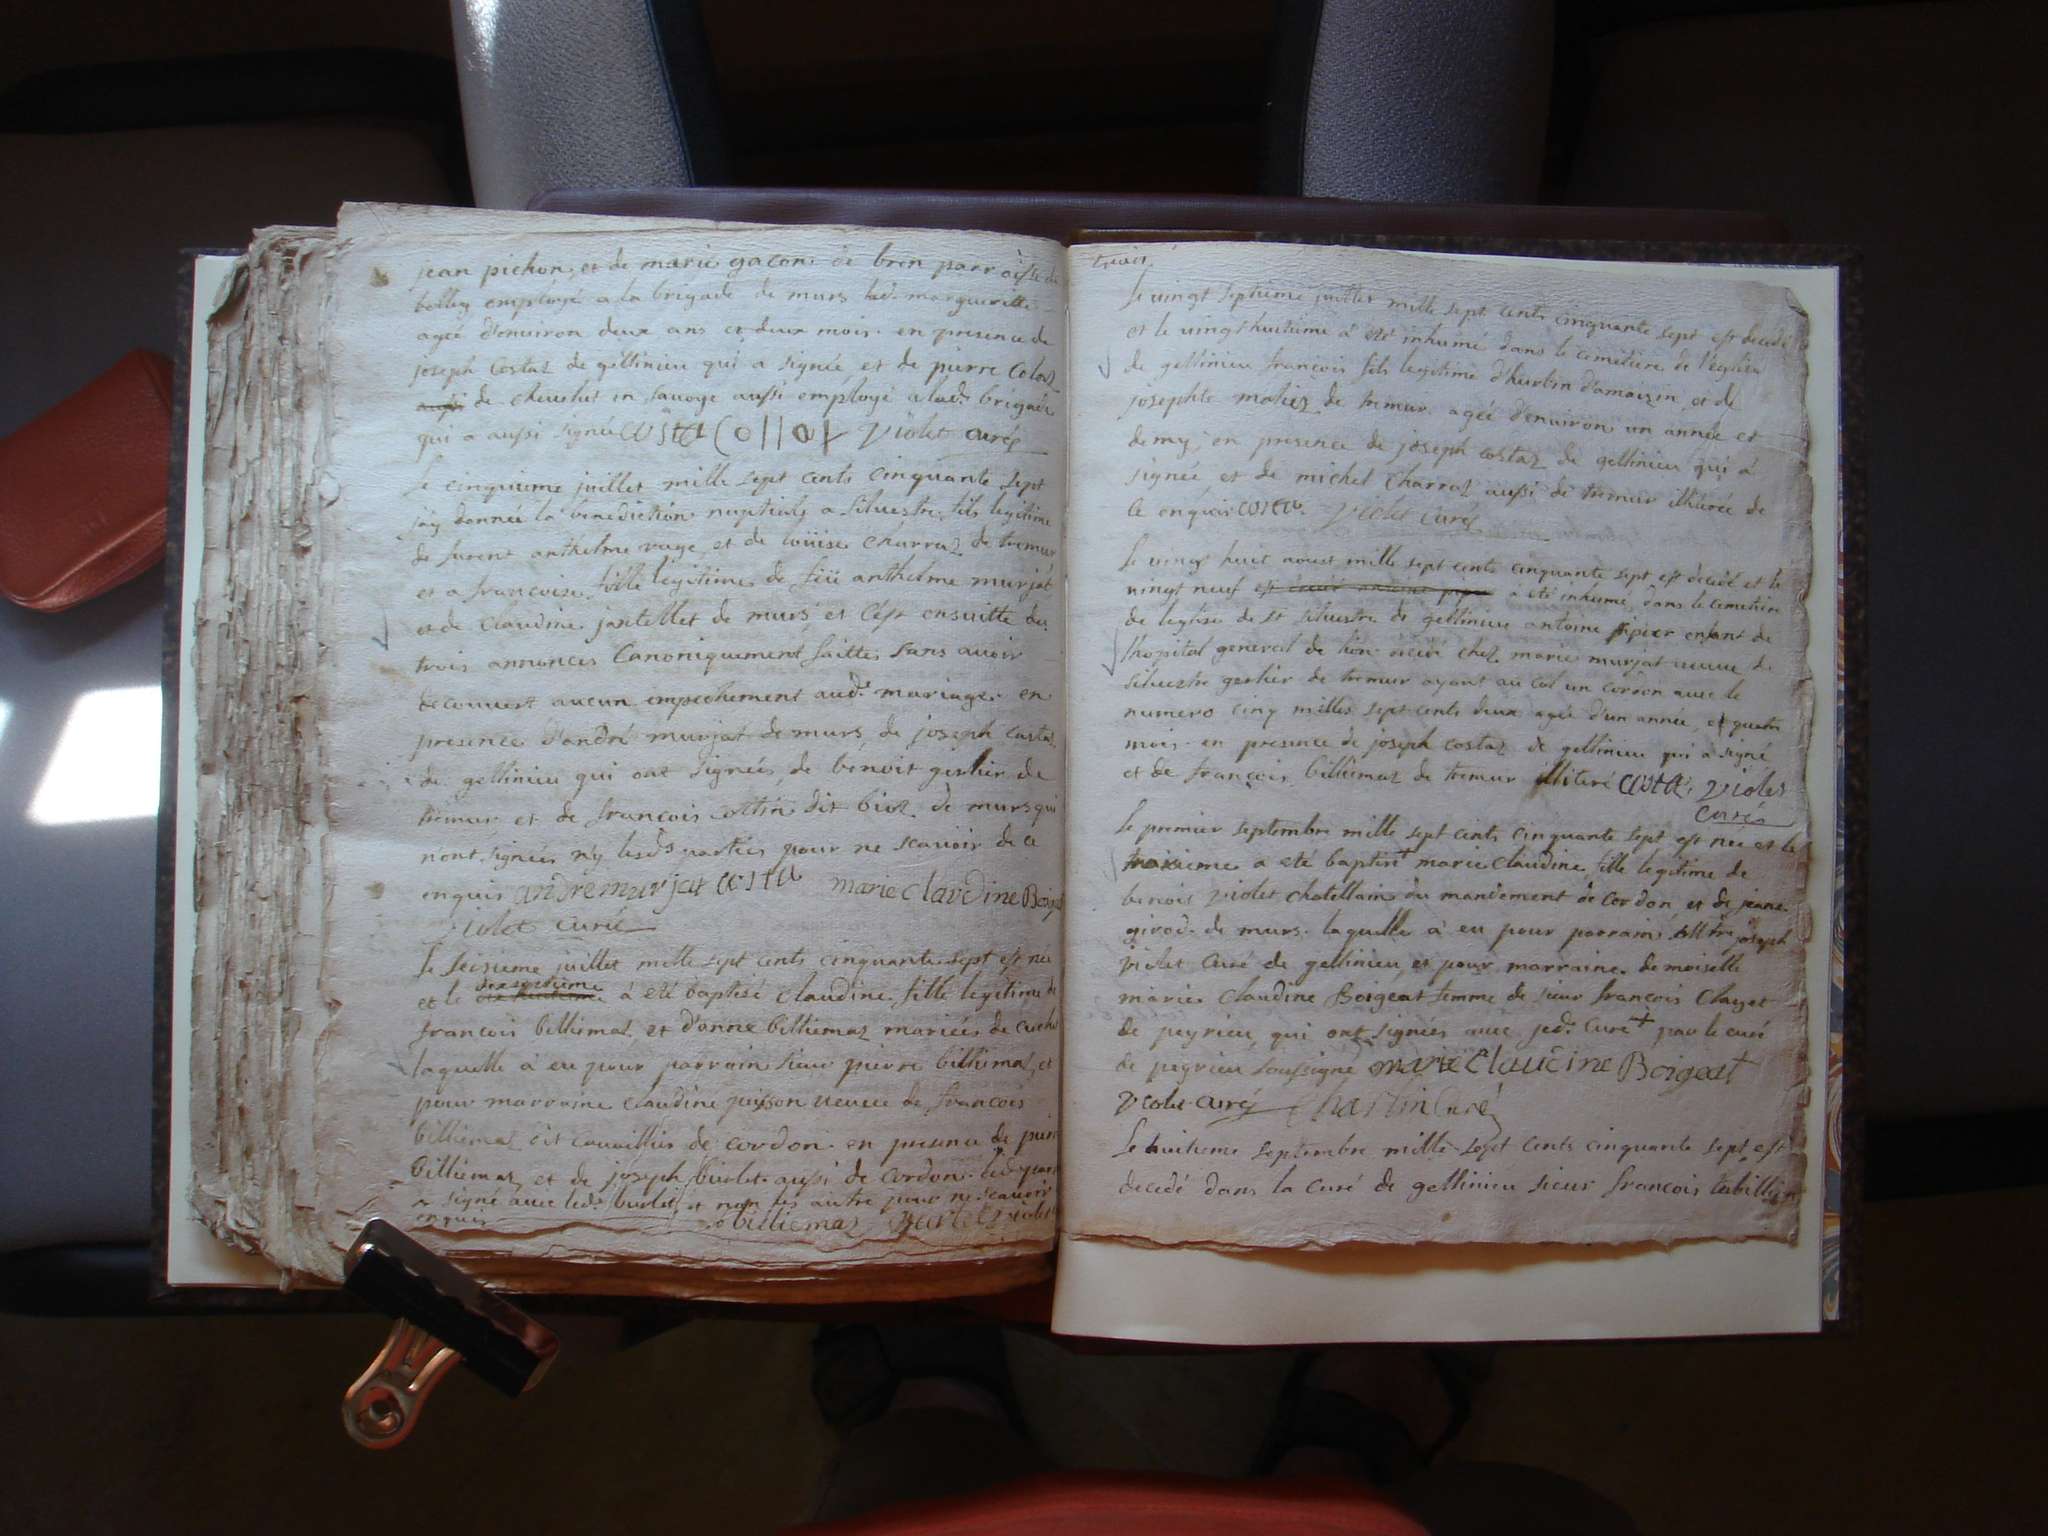 jean pichon, et de marie gacon de bren parroisse de
belley employé a la brigade de murs lad. margueritte
agée d'environ deux ans et deux mois. en presence de
joseph costaz de gellinieu qui a signée, et de pierre Colloz
de cheuelut en sauoye aussi employé a lade. brigade
qui a aussi signée costa Collat Violet curé
Le cinquieme juillet mille sept cents cinquante sept
j'ay donnée la benediction nuptiale a siluestre fils legitime
de furent anthelme ruge, et de louise charraz de tremur
et a françoise fille legitime de feü anthelme murjat
et de claudine jantellet de murs, et c'est ensuitte des
trois annonces Canoniquement faittes sans auoir
decouuert aucun empechement aude. mariage. en
presence d'andré murjat de murs, de joseph costaz
de gellinieu qui ont signées, de benoit gerlier de
tremur et de françois cottin dit bioz de murs qui
n'ont signées n'y lesds. parties pour ne scauoir de ce
enquis andremurjat costa marie claudine Boigeat
violet curé
Le seisieme juillet mille sept cents cinquante sept est née
et le dixseptieme à eté baptisé claudine fille legitime de
françois billiemaz, et d'anne billiemaz mariées de
laquelle à eu pour parrain sieur pierre billiemaz, et
pour marraine claudine veuue de françois
billiemaz dit de cordon. en presence de pierre
billiemaz et de joseph buolet aussi de cordon.
signé auec led. buolet, et non les autre pour ne scauoir
enquis billiemaz violet
Le vingt septieme juillet mille sept cents cinquante sept est decedé
et le vingthuitieme à eté inhumé dans le cemetiere de l'eglise
de gellinieu françois fils legitime d'hurbin d'amaizin, et de
josephte maliez de tremur agée d'enuiron un année et
demy, en presence de joseph costaz de gellinieu qui à
signée, et de michel charraz aussi de tremur illiterée de
ce enquis costa. violet curé
Le vingt huit aoust mille sept cents cinquante sept est decedé et le
vingt neuf à eté inhumé, dans le cemetiere
de l'eglise de st siluestre de gellinieu antoine pipier enfant de
l'hopital general de lion chez marie murjat ueuue de
siluestre gerlier de tremur ayant au col un cordon auec le
numero cinq milles sept cents deux agée d'un année, et quatre
mois. en presence de joseph costaz de gellinieu qui à signé
et de françois billiemaz de tremur illiteré costa. violet
curé
Le premier septembre mille sept cents cinquante sept est née et le
troisieme à eté baptisé+ marie claudine fille legitime de
benoit violet chatellain du mandement de cordon, et de jeane
girod de murs. laquelle à eu pour parrain joseph
violet curé de gellinieu et pour marraine. demoiselle
marie claudine Boigeat femme de sieur françois clayet
de peyrieu, qui ont signées auec led. curé + par le curé
de peyrieu soussigné marie claudine Boigeat
violet curé Charlin curé
Le huitieme septembre mille sept cents cinquante sept est
decedé dans la curé de gellinieu sieur françois